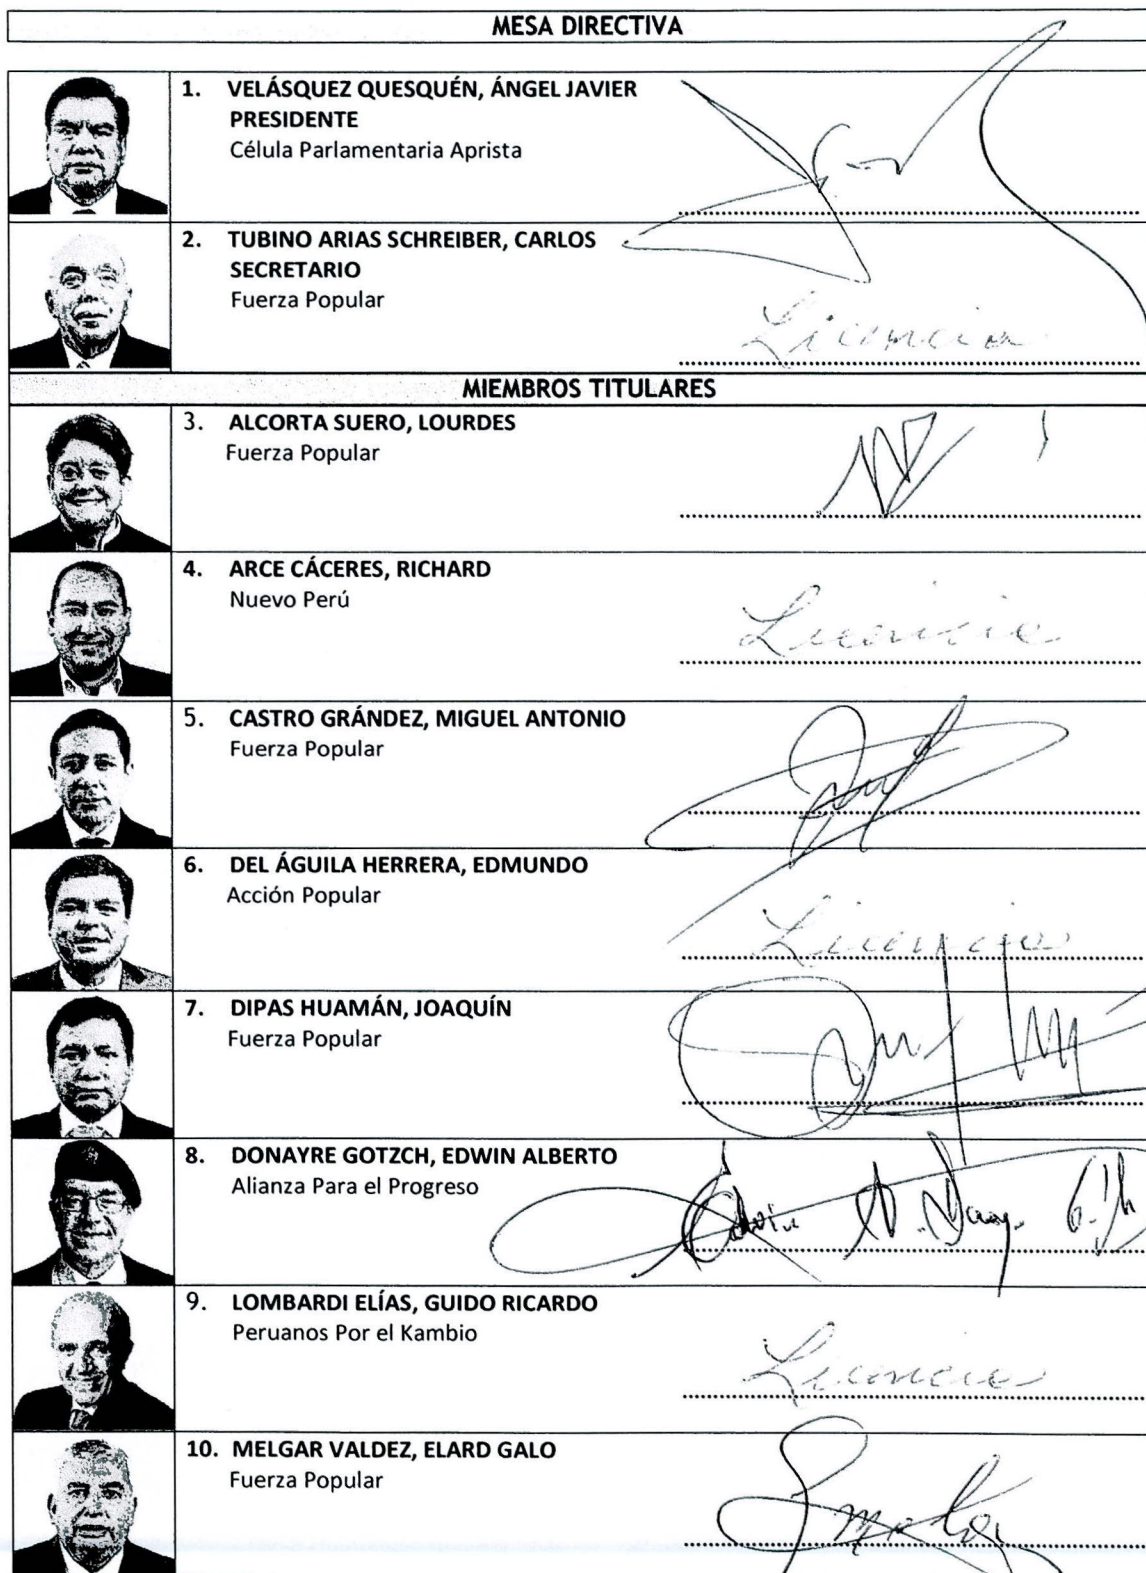 MESA DIRECTIVA
1. VELÁSQUEZ QUESQUÉN, ÁNGEL JAVIER
PRESIDENTE
Célula Parlamentaria Aprista
2. TUBINO ARIAS SCHREIBER, CARLOS
SECRETARIO
Fuerza Popular
Licencia
MIEMBROS TITULARES
3. ALCORTA SUERO, LOURDES
Fuerza Popular
4. ARCE CÁCERES, RICHARD
Nuevo Perú
Licencia
5. CASTRO GRÁNDEZ, MIGUEL ANTONIO
Fuerza Popular
6. DEL ÁGUILA HERRERA, EDMUNDO
Acción Popular
Licencia
7. DIPAS HUAMÁN, JOAQUÍN
Fuerza Popular
8. DONAYRE GOTZCH, EDWIN ALBERTO
Alianza Para el Progreso
Edwin
9. LOMBARDI ELÍAS, GUIDO RICARDO
Peruanos Por el Kambio
Licencia
10. MELGAR VALDEZ, ELARD GALO
Fuerza Popular